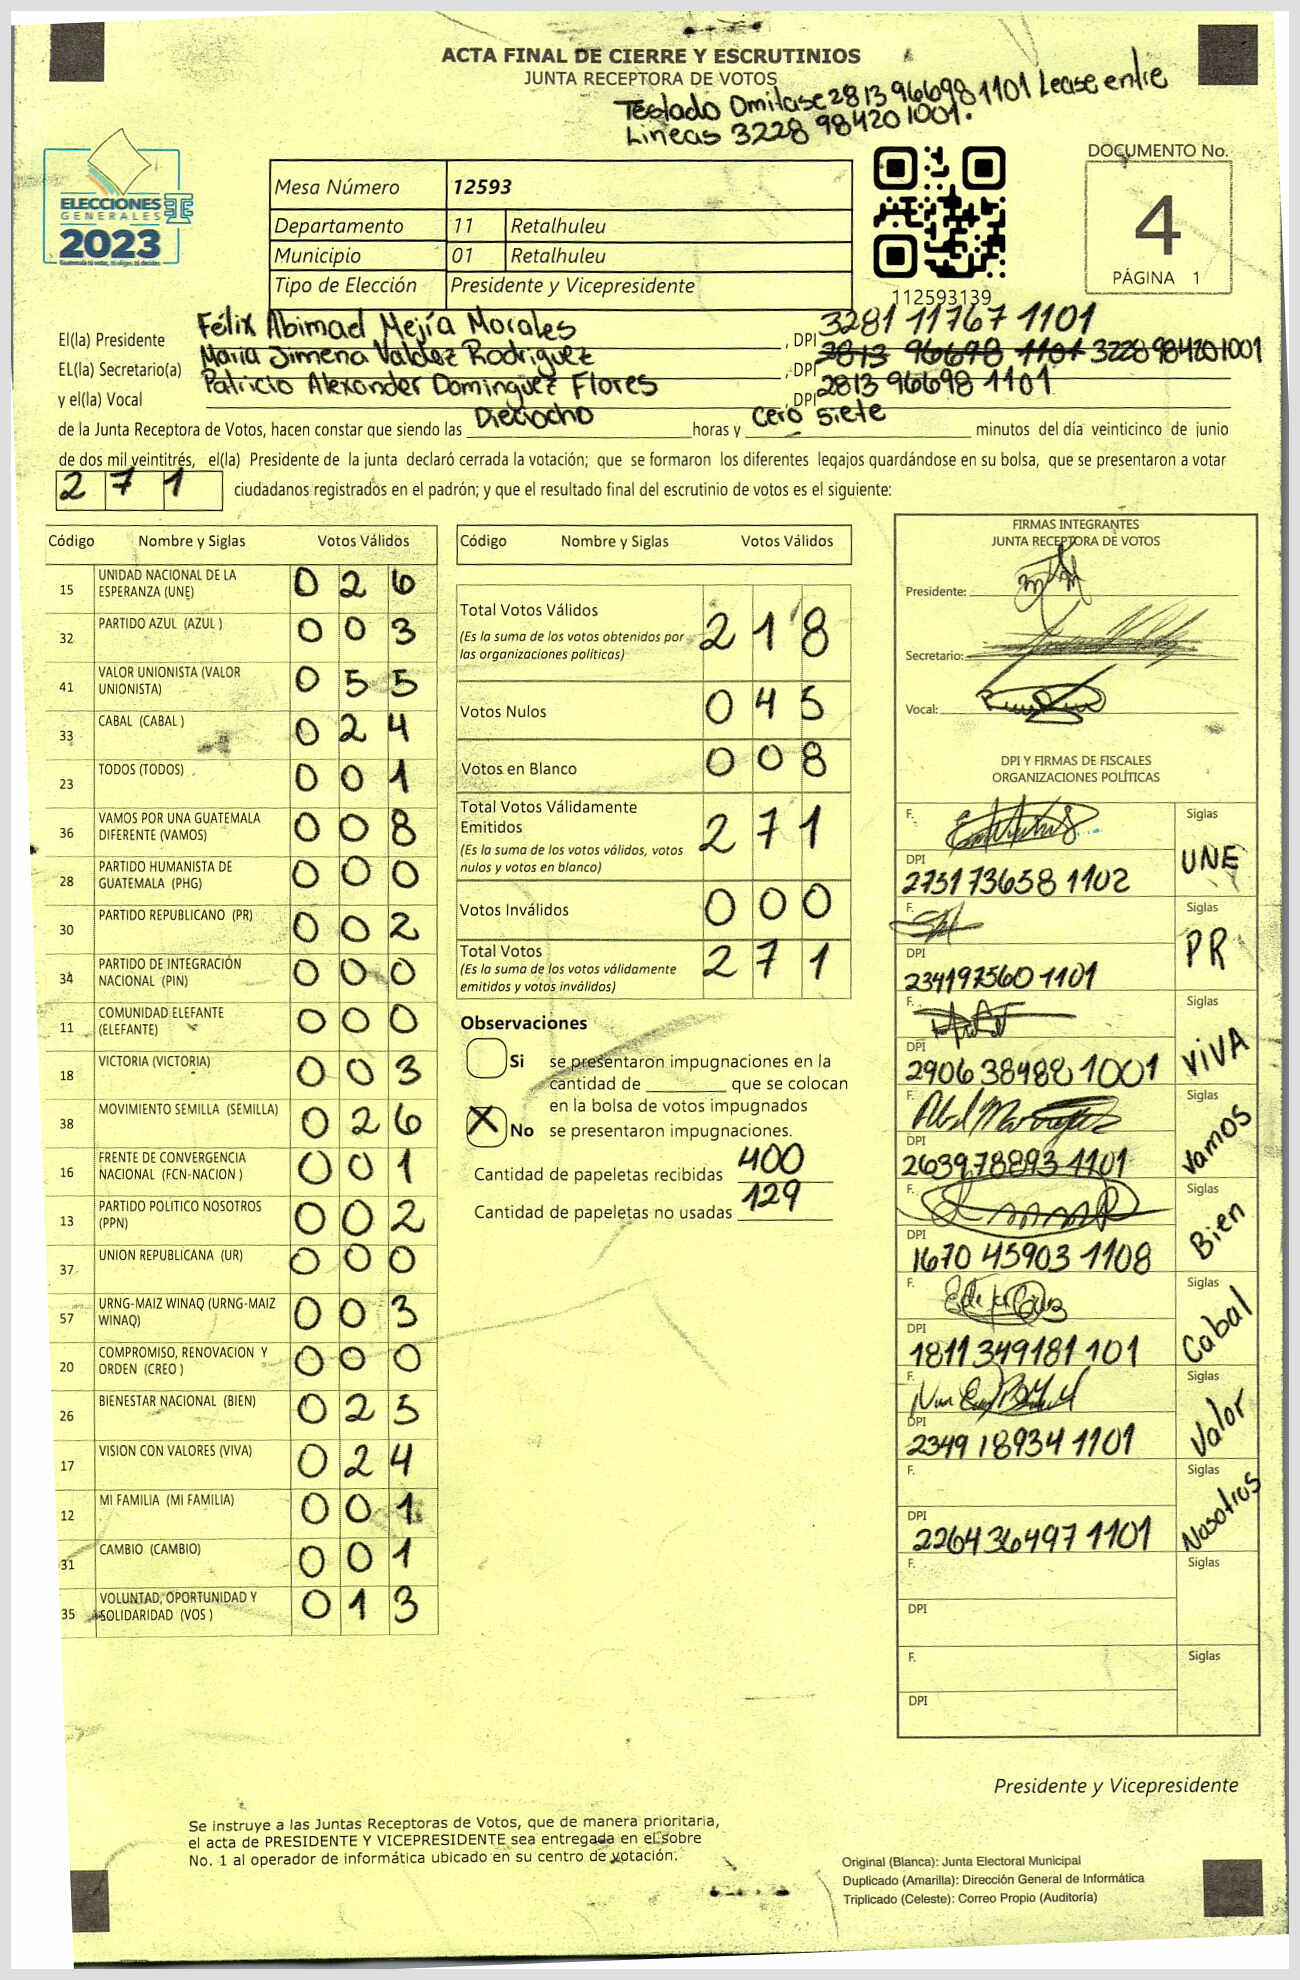 ACTA FINAL DE CIERRE Y ESCRUTINIOS
JUNTA RECEPTORA DE VOTOS
Testado Omitase 2813 96698 1101 Lease entre
Lineas 3228 98420 1001.
ELECCIONES
GENERALES
2023
Mesa Número 12593
Departamento 11 Retalhuleu
Municipio 01 Retalhuleu
Tipo de Elección Presidente y Vicepresidente
112593139
DOCUMENTO No.
4
PÁGINA 1
El(la) Presidente Félix Abimael Mejía Morales , DPI 3281 11767 1101
EL(la) Secretario(a) Maria Jimena Valdez Rodriguez , DPI 2813 96698 1101 3228 98420 1001
y el(la) Vocal Patricio Alexander Dominguez Flores , DPI 2813 96698 1101
de la Junta Receptora de Votos, hacen constar que siendo las Dieciocho horas y Cero Siete minutos del día veinticinco de junio
de dos mil veintitrés, el(la) Presidente de la junta declaró cerrada la votación; que se formaron los diferentes legajos guardándose en su bolsa, que se presentaron a votar
271 ciudadanos registrados en el padrón; y que el resultado final del escrutinio de votos es el siguiente:
Código Nombre y Siglas Votos Válidos
15 UNIDAD NACIONAL DE LA ESPERANZA (UNE) 026
32 PARTIDO AZUL (AZUL ) 003
41 VALOR UNIONISTA (VALOR UNIONISTA) 055
33 CABAL (CABAL ) 024
23 TODOS (TODOS) 001
36 VAMOS POR UNA GUATEMALA DIFERENTE (VAMOS) 008
28 PARTIDO HUMANISTA DE GUATEMALA (PHG) 000
30 PARTIDO REPUBLICANO (PR) 002
34 PARTIDO DE INTEGRACIÓN NACIONAL (PIN) 000
11 COMUNIDAD ELEFANTE (ELEFANTE) 000
18 VICTORIA (VICTORIA) 003
38 MOVIMIENTO SEMILLA (SEMILLA) 026
16 FRENTE DE CONVERGENCIA NACIONAL (FCN-NACION ) 001
13 PARTIDO POLITICO NOSOTROS (PPN) 002
37 UNION REPUBLICANA (UR) 000
57 URNG-MAIZ WINAQ (URNG-MAIZ WINAQ) 003
20 COMPROMISO, RENOVACION Y ORDEN (CREO ) 000
26 BIENESTAR NACIONAL (BIEN) 025
17 VISION CON VALORES (VIVA) 024
12 MI FAMILIA (MI FAMILIA) 001
31 CAMBIO (CAMBIO) 001
35 VOLUNTAD, OPORTUNIDAD Y SOLIDARIDAD (VOS ) 013
Código Nombre y Siglas Votos Válidos
Total Votos Válidos 218
(Es la suma de los votos obtenidos por
las organizaciones políticas)
Votos Nulos 045
Votos en Blanco 008
Total Votos Válidamente
Emitidos 271
(Es la suma de los votos válidos, votos
nulos y votos en blanco)
Votos Inválidos 000
Total Votos 271
(Es la suma de los votos válidamente
emitidos y votos inválidos)
Observaciones
Si se presentaron impugnaciones en la
cantidad de ________ que se colocan
en la bolsa de votos impugnados
X No se presentaron impugnaciones.
Cantidad de papeletas recibidas 400
Cantidad de papeletas no usadas 129
FIRMAS INTEGRANTES
JUNTA RECEPTORA DE VOTOS
Presidente:
Secretario:
Vocal:
DPI Y FIRMAS DE FISCALES
ORGANIZACIONES POLÍTICAS
F. Siglas
DPI UNE
2751 73658 1102
F. Siglas
DPI PR
2341 97560 1101
F. Siglas
DPI VIVA
2906 38488 1001
F. Siglas
DPI Vamos
2639 78893 1101
F. Siglas
DPI Bien
1670 45903 1108
F. Siglas
DPI Cabal
1811 34918 1101
F. Siglas
DPI Valor
2349 18934 1101
F. Siglas
DPI Nosotros
2264 36497 1101
F. Siglas
DPI
F. Siglas
DPI
Presidente y Vicepresidente
Se instruye a las Juntas Receptoras de Votos, que de manera prioritaria,
el acta de PRESIDENTE Y VICEPRESIDENTE sea entregada en el sobre
No. 1 al operador de informática ubicado en su centro de votación.
Original (Blanca): Junta Electoral Municipal
Duplicado (Amarilla): Dirección General de Informática
Triplicado (Celeste): Correo Propio (Auditoría)